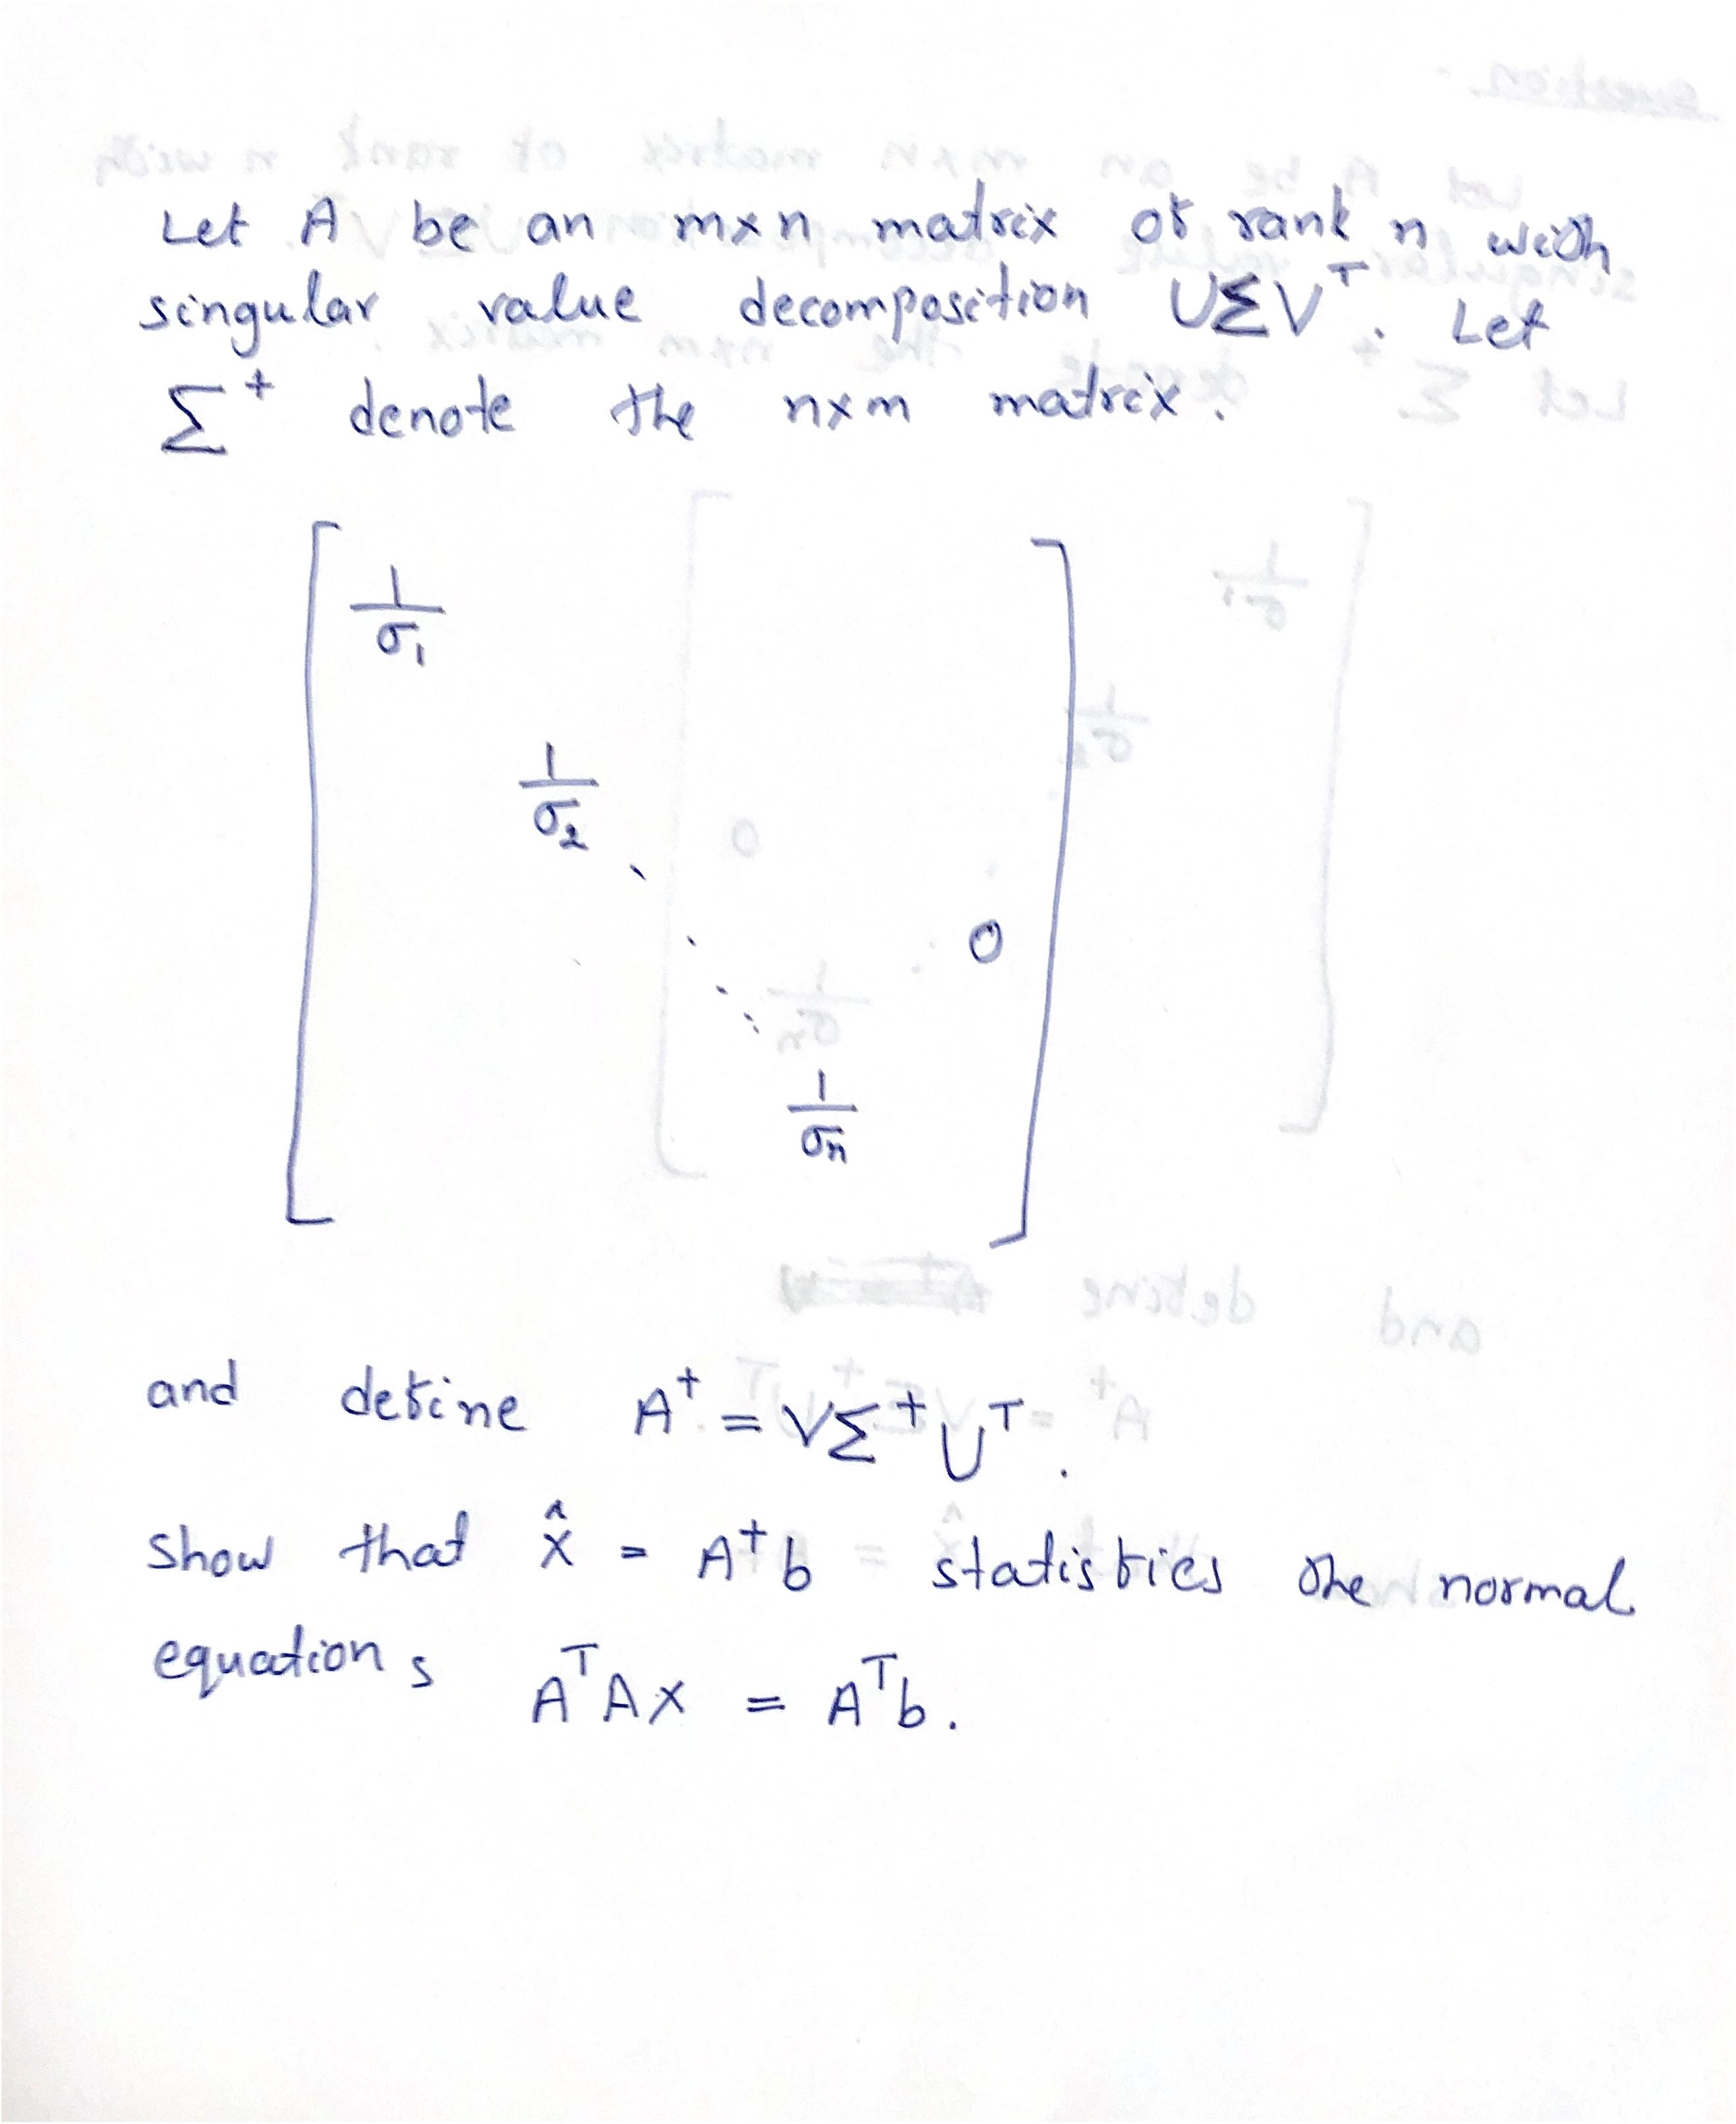 Let A be an m×n matrix of rank n with
singular value decomposition UΣVᵀ. Let
Σ⁺ denote the n×m matrix.
1/σ₁
1/σ₂
0
1/σn
and define A⁺ = VΣ⁺Uᵀ.
show that x̂ = A⁺b statisfies the normal
equations AᵀAx = Aᵀb.